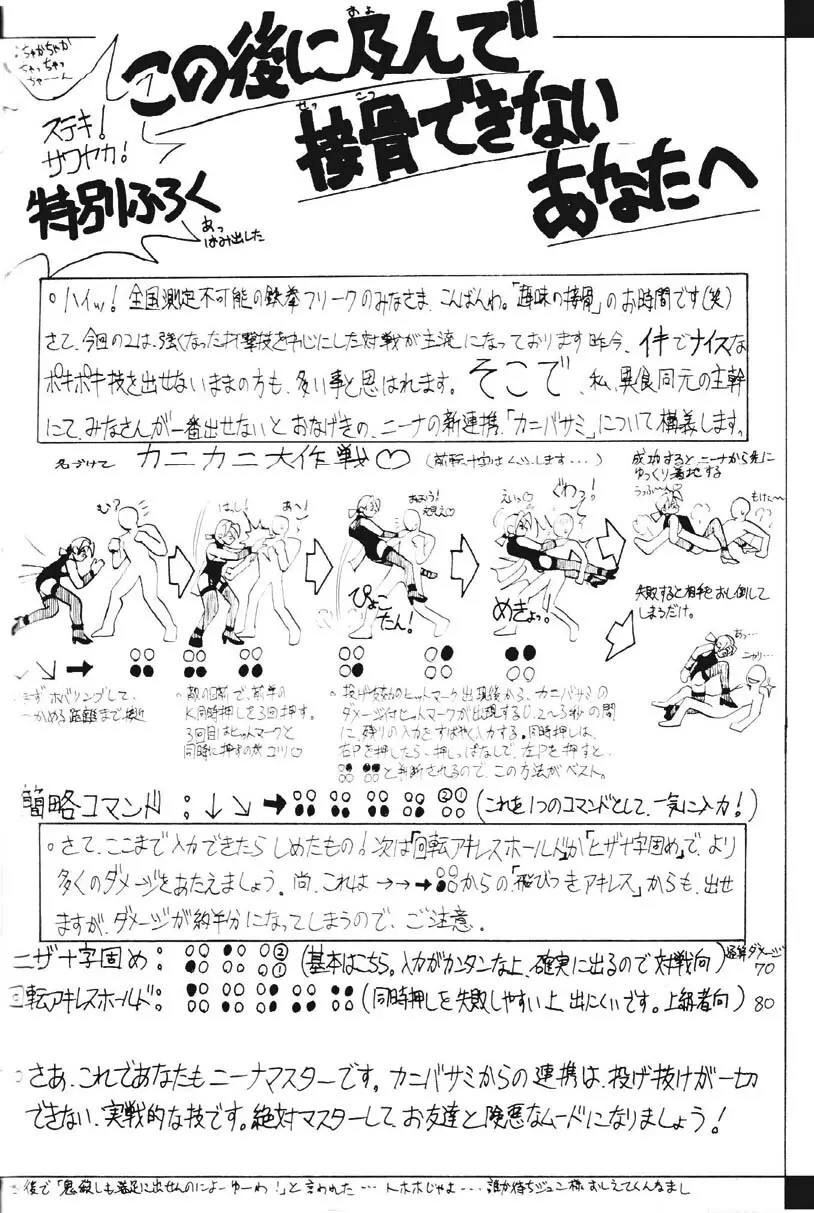 ちゃかちゃか
ちゃっちゃっ
ちゃーーん
この後に及んで
およ
接骨できない
せっ こつ
あなたへ
ステキ!
サワヤカ!
特別ふろく
あっ
はみ出した
◦ハイッ! 全国測定不可能の鉄拳フリークのみなさま、こんばんわ。「趣味の接骨」のお時間です(笑)
さて、今回の2は、強くなった打撃技を中心にした対戦が主流になっております昨今、イキでナイスな
ポキポキ技を出せないままの方も、多い事と思はれます。そこで、私、異食同元の主幹
にて、みなさんが一番出せないとおなげきの、ニーナの新連携、「カニバサミ」について構義します。
名づけて カニカニ大作戦♡
成功すると、ニーナから先に
ゆっくり着地する
うっふ〜ん
もけた〜
む?
はし!
あ〜!
えいっ♡
ぐわっ!
ぴょこ
たん!
めきょっ。
失敗すると相手をおし倒して
しまうだけ。
あっ…
ニヤリ…
↘ ➡ ○○●● ○○●● ○○●● ○○●● ○○●○ ●●○○
まずホバリングして、
つかめる距離まで接近
◦敵の目前で、前半の
K同時押しを3回押す。
3回目はヒットマークと
同時に押すのがコツ♡
◦投げ成功のヒットマーク出現後から、カニバサミの
ダメージ付ヒットマークが出現する0.2〜3秒の間
に、残りの入力をすばやく入力する。同時押しは、
右Pを押したら、押しっぱなしで、左Pを押すと、
と判断されるので、この方法がベスト。
簡略コマンド:↓↘➡ (これを1つのコマンドとして、一気に入力!)
◦さて、ここまで入力できたらしめたもの! 次は「回転アキレスホールド」か「ヒザ十字固め」で、より
多くのダメージをあたえましょう。尚、これは→→→からの「飛びつきアキレス」からも、出せ
ますが、ダメージが約半分になってしまうので、ご注意。
ニザ十字固め: (基本はこちら。入力がカンタンな上、確実に出るので対戦向) ダメージ 70
回転アキレスホールド: (同時押しを失敗しやすい上、出にくいです。上級者向) 80
◦さあ、これであなたもニーナマスターです。カニバサミからの連携は、投げ抜けが一切
できない、実戦的な技です。絶対マスターして、お友達と険悪なムードになりましょう!
後で「鬼殺しも満足に出せんのによーゆーわ!」と言われた…トホホじゃよ… 誰か待ちジュン様おしえてくんなまし